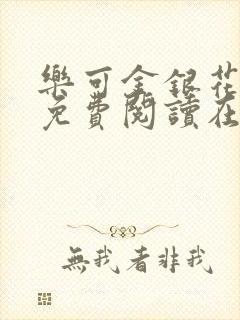 樂可金銀花
免費閱讀在
無我者非我